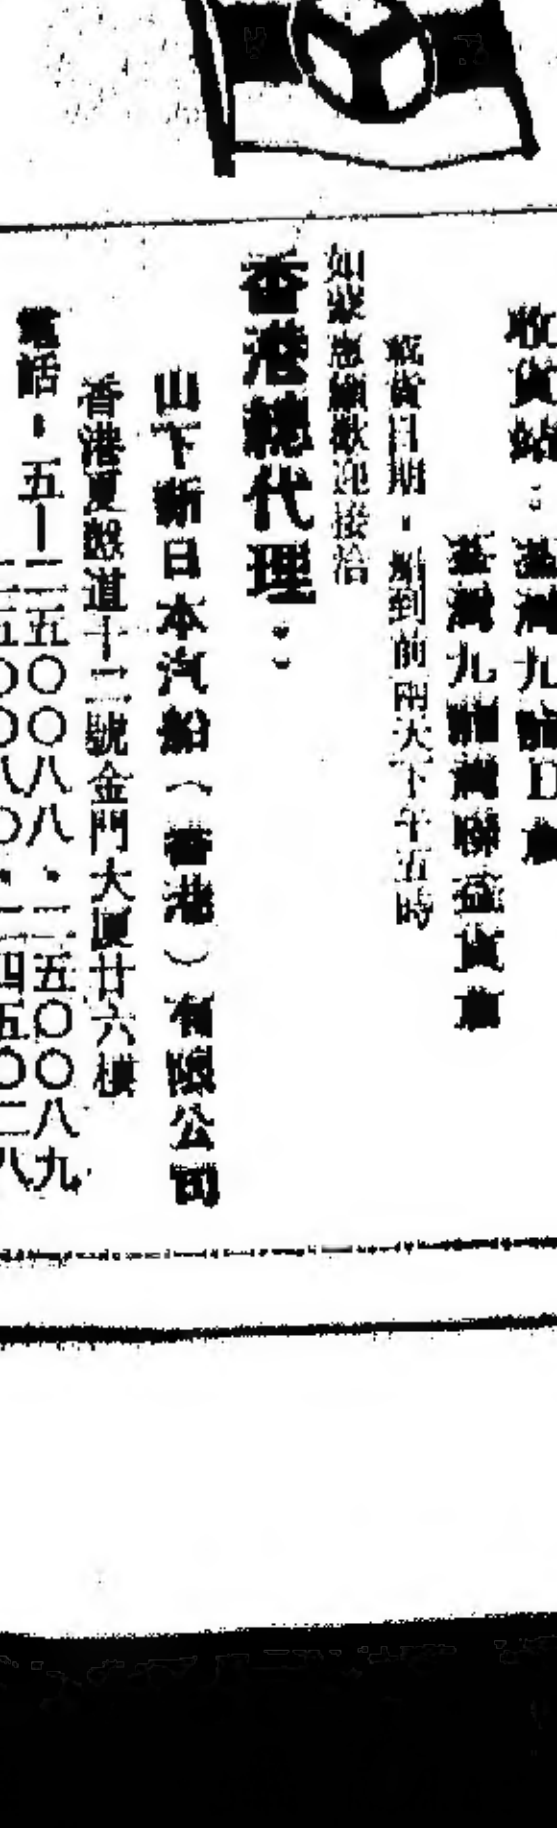 收貨站：荃灣九龍口倉
荃灣九龍灣聯益貨倉
截貨日期・船到前兩天下午五時
如蒙惠顧歡迎接洽
香港總代理：
山下新日本汽船（香港）有限公司
香港夏慤道十二號金門大厦廿六樓
電話・五—二五〇〇八八・二五〇〇八九
二五〇〇八〇・二四五〇二八